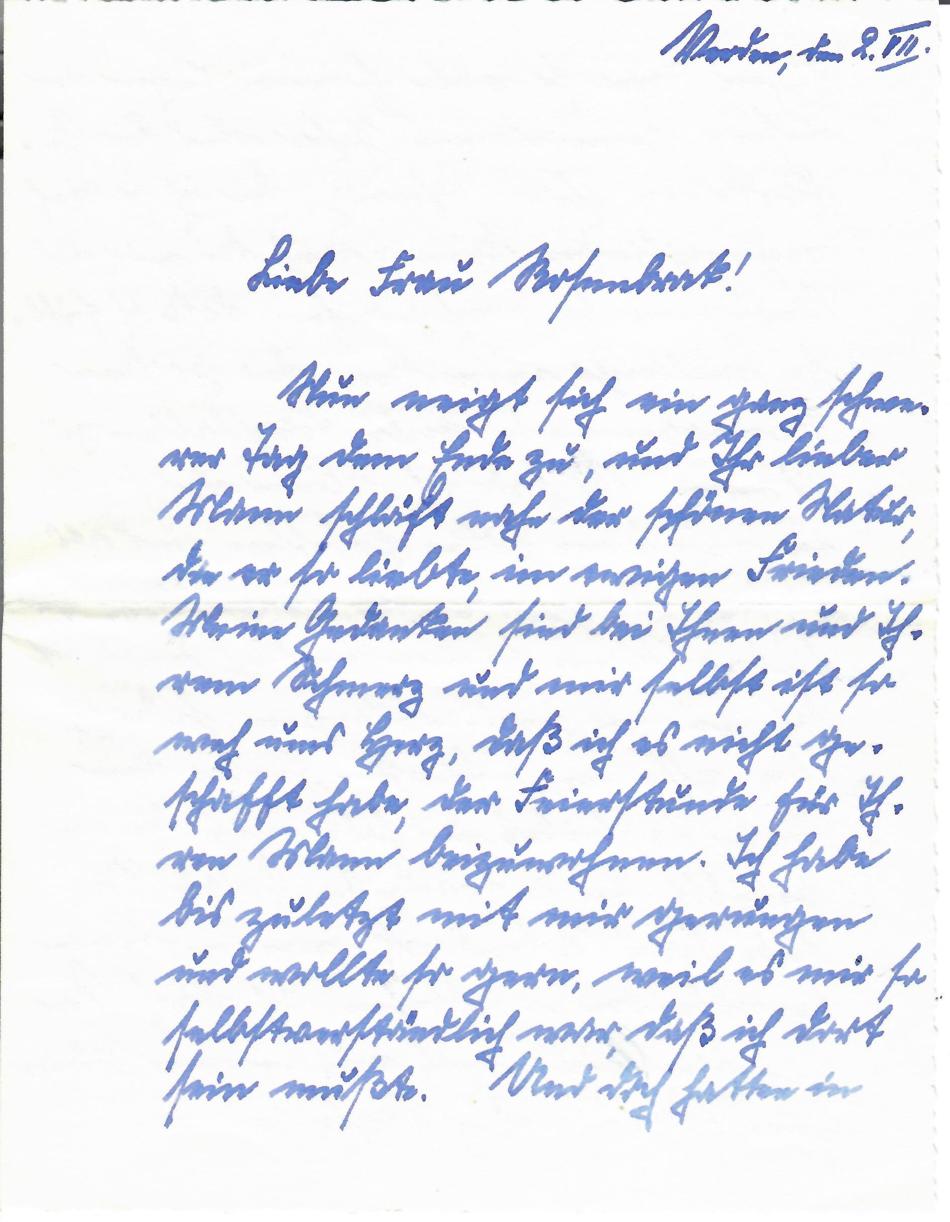 Verden, den 2. VII.
Liebe Frau Rosenbrock!
Nun neigt sich ein ganz schwe-
rer Tag dem Ende zu, und Ihr lieber
Mann schläft nahe der schönen Natur,
die er so liebte, im ewigen Frieden.
Meine Gedanken sind bei Ihnen und Ih-
rem Schmerz und mir selbst ist so
weh ums Herz, daß ich es nicht ge-
schafft habe, der Feierstunde für Ih-
ren Mann beizuwohnen. Ich habe
bis zuletzt mit mir gerungen
und wollte so gern, weil es mir so
selbstverständlich war, daß ich dort
sein mußte. Und doch hatten in